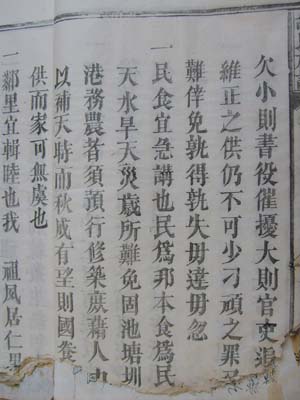 欠小則書役催擾大則官吏追
維正之供仍不可少刁頑之罪
難倖免孰得孰失毋違毋忽
一民食宜急講也民爲邦本食爲民
天水旱天災歲所難免固池塘圳
港務農者須預行修築庶藉人
以補天時而秋成有望則國養
供而家可無虞也
一鄰里宜輯睦也我 祖風居仁里